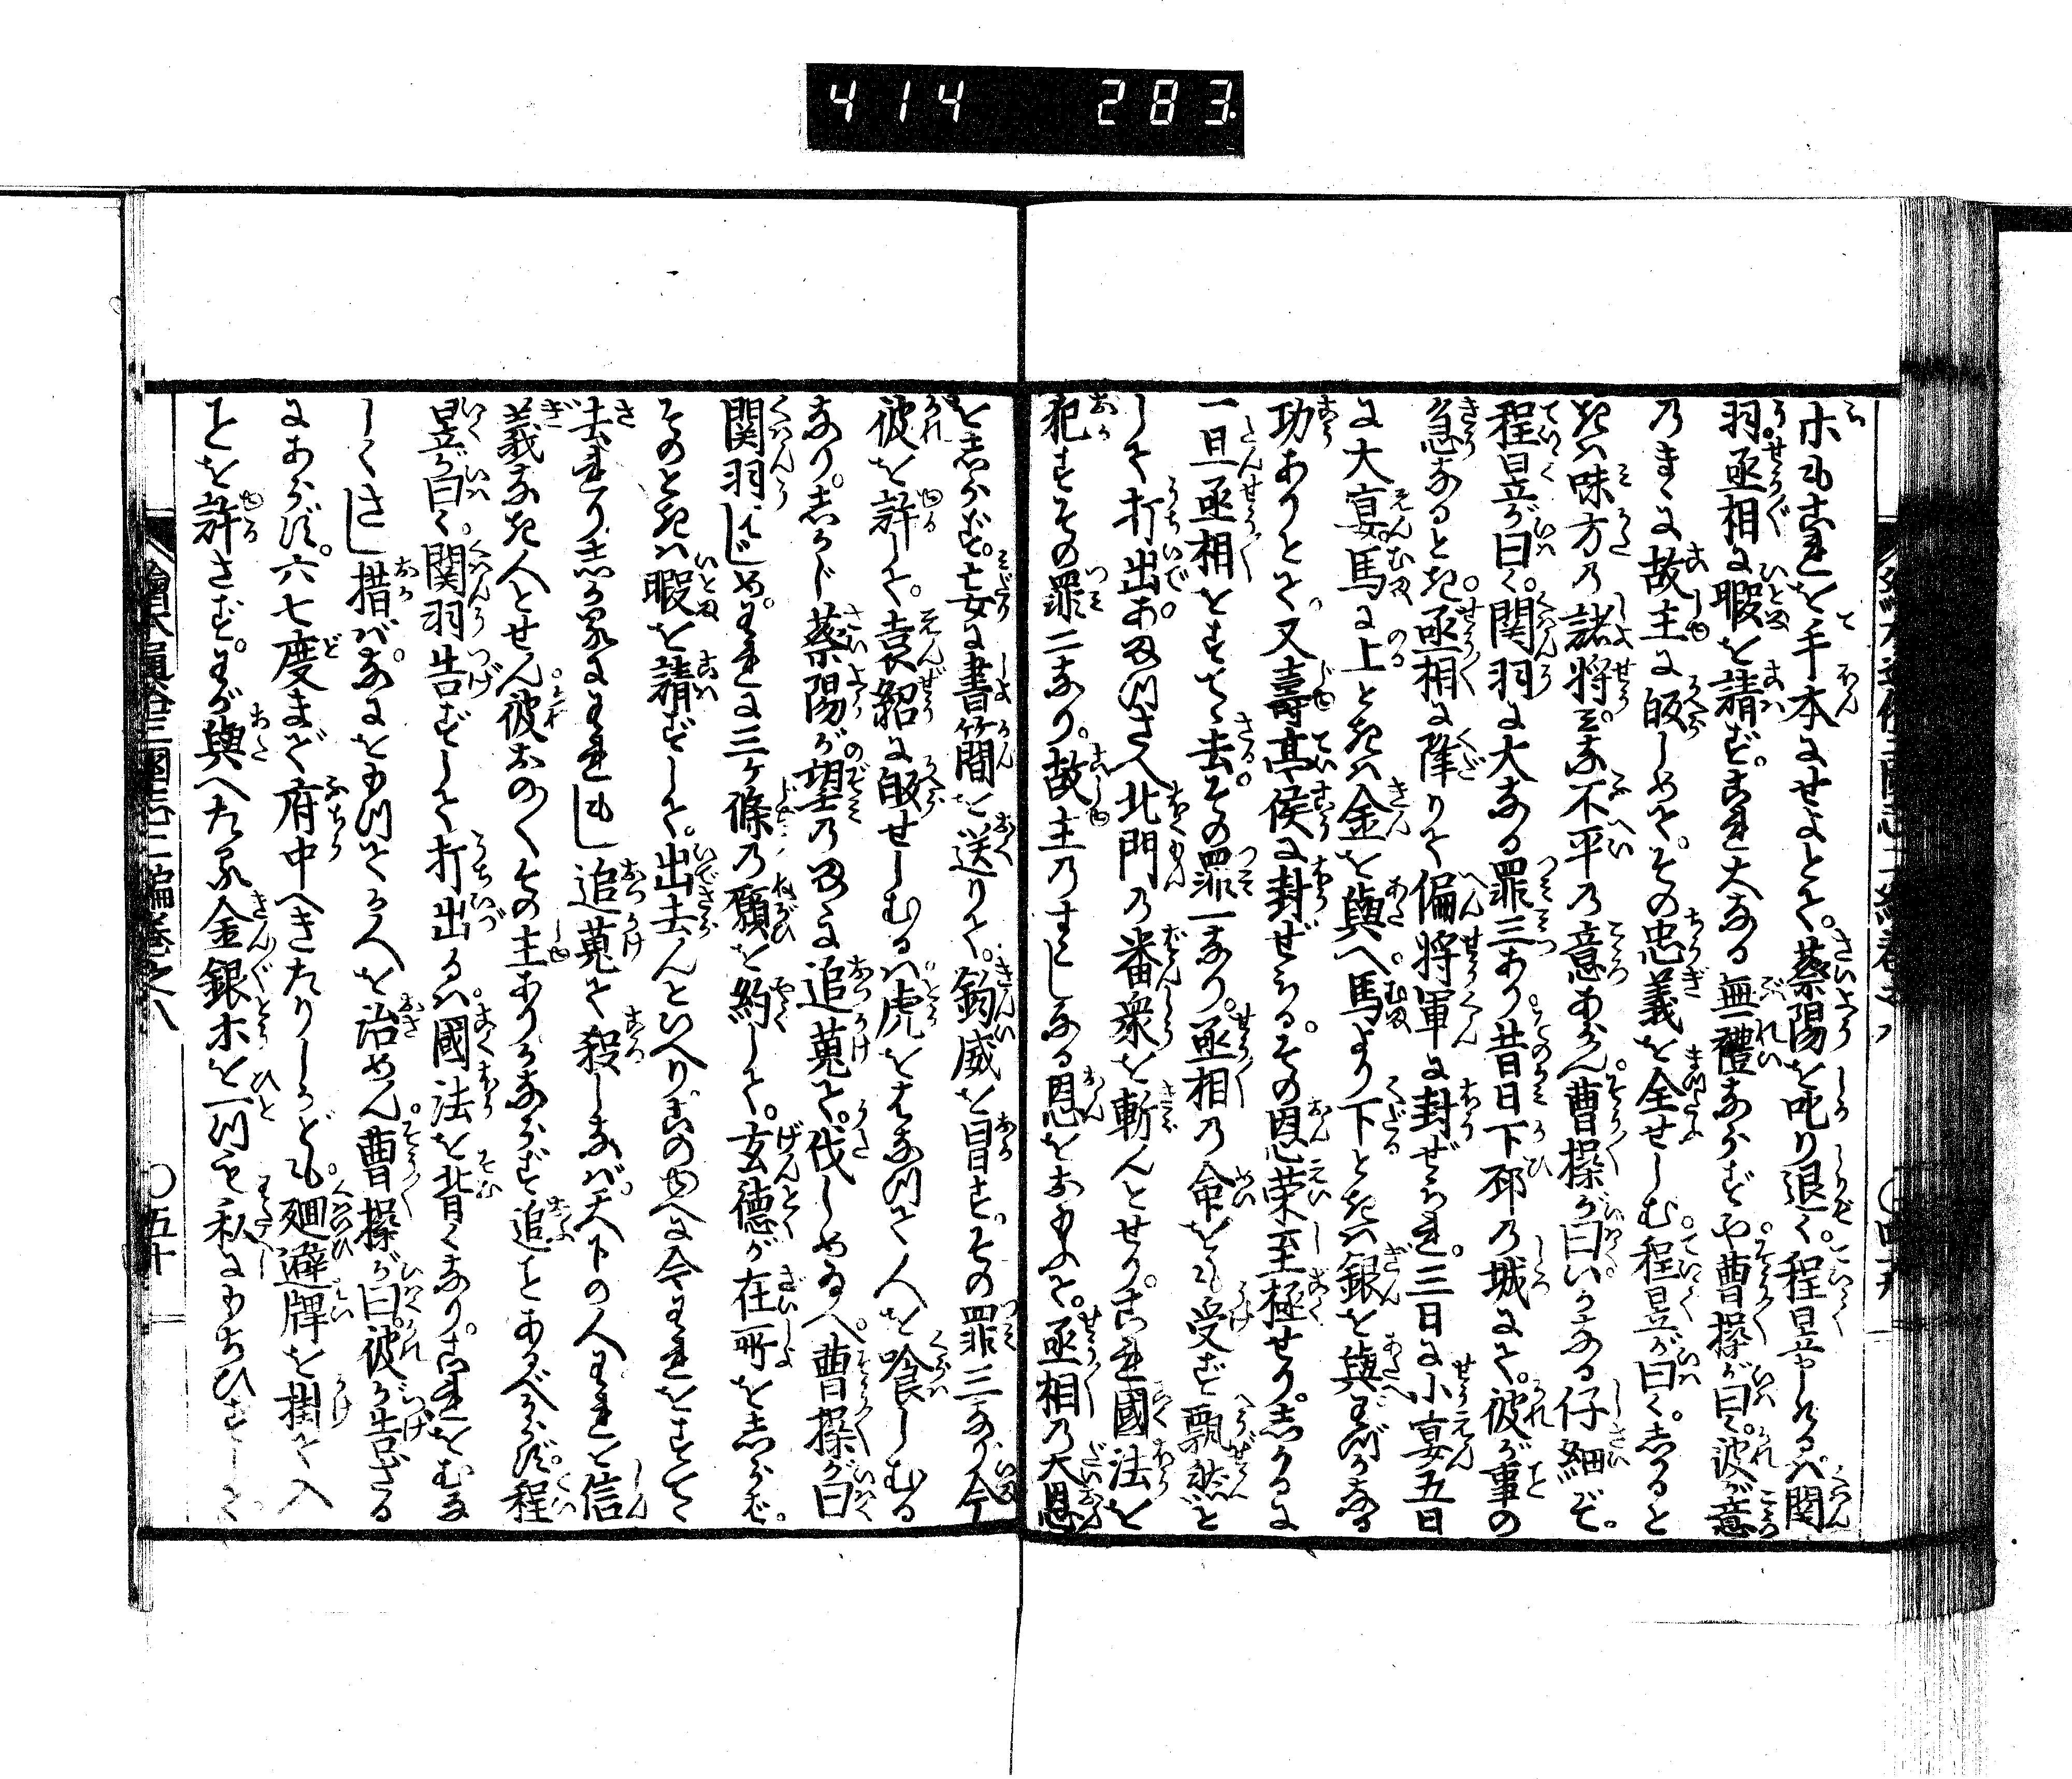 414 283
ホもこれを手本にせよとて。蔡陽を叱り退く。程昱申しけるハ関
羽。丞相に暇を請ず。これ大なる無禮ならずや曹操が曰く。彼が意
乃まゝに故主に皈しめて。その忠義を全せしむ。程昱が曰く。しかると
きハ味方乃諸将。みな不平乃意あらん。曹操が曰いかなる仔細ぞ。
程昱が曰く。関羽に大なる罪三あり。昔日下邳乃城にて。彼が事の
急なるとき。丞相に降りて偏将軍に封ぜられ。三日に小宴五日
に大宴。馬に上ときハ金を與へ。馬より下ときハ銀を與わづかなる
功ありとて。又壽亭侯に封ぜらる。その恩榮至極せり。しかるに
一旦丞相をすてゝ去る。その罪一なり。丞相乃命をも受ず飄然と
して打出。あまつさへ北門乃番衆を斬んとせり。これ國法を
犯すその罪二なり。故主乃すこしなる恩をおもふて。丞相乃大恩
をしらず。妄に書簡を送りて。鈞威を冒す。その罪三なり今
彼を許して。袁紹に皈せしむるハ。虎をはなつて人を喰しむる
なり。しかじ蔡陽が望乃まゝに追蒐て。伐しめ給へ。曹操が曰
関羽はじめ。われに三ヶ條乃願を約して。玄徳が在所をしらば。
そのときハ暇を請ずして。出去んといへり。このゆへに今われをすてゝ
去れり。しかるにわれもし追蒐て殺しなバ。天下の人われを信
義なき人とせん。彼おの〱その主ありかならず追ことあるべからず。程
昱が曰く。関羽告ずして打出るハ。國法を背くなり。これをむな
しくさし措バ。なにをもつてかハを治めん。曹操が曰。彼が告ざる
にあらず。六七度まで府中へきたりしかども。廻避牌を掛て入
ことを許さず。わが與へたる金銀ホを一つも私にもちひずして
繪本通俗三國志二編巻之八
〇四十九
繪本通俗三國志二編巻之八
〇五十